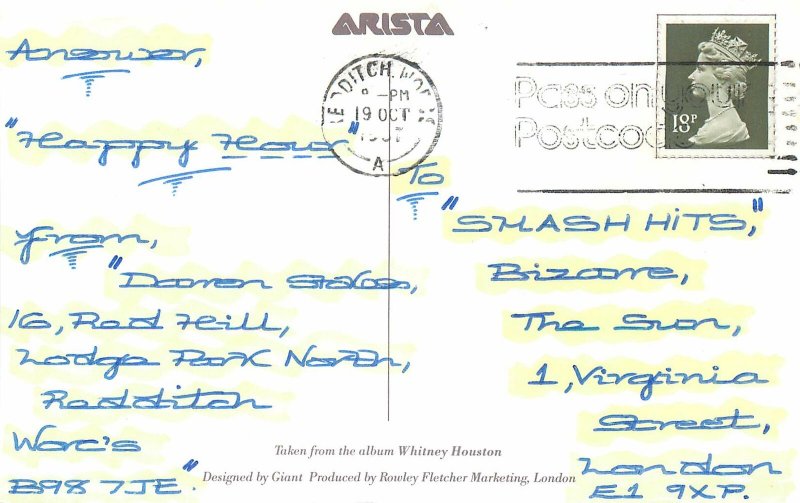 ARISTA
Answer,
"Happy Hour"
From,
"Darren Stokes,
16, Red Hill,
Lodge Park North,
Redditch
Worc's
B98 7JE."
REDDITCH, WORCS
8 -PM
19 OCT
A
Pass on your
Postcode
18P
To
"SMASH HITS,"
Bizarre,
The Sun,
1, Virginia
Street,
London
E1 9XP.
Taken from the album Whitney Houston
Designed by Giant Produced by Rowley Fletcher Marketing, London